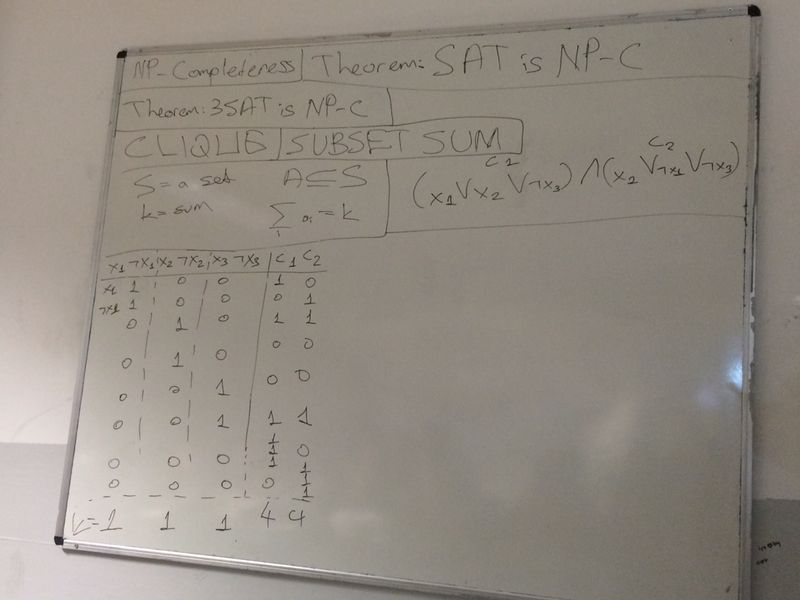 NP-Completeness Theorem: SAT is NP-C
Theorem: 3SAT is NP-C
CLIQUE SUBSET SUM
S = a set A⊆S
k = sum ∑ ai = k
i
C1 C2
(x1 V x2 V ¬x3) ∧ (x2 V ¬x1 V ¬x3)
x1 ¬x1 x2 ¬x2 x3 ¬x3 C1 C2
x1 1 0 0 1 0
¬x1 1 0 0 0 1
0 1 0 1 1
0 1 0 0 0
0 0 1 0 0
0 0 1 1 1
1
0 0 0 1 0
1 1
0 0 0 0 1
1
k= 1 1 1 4 4